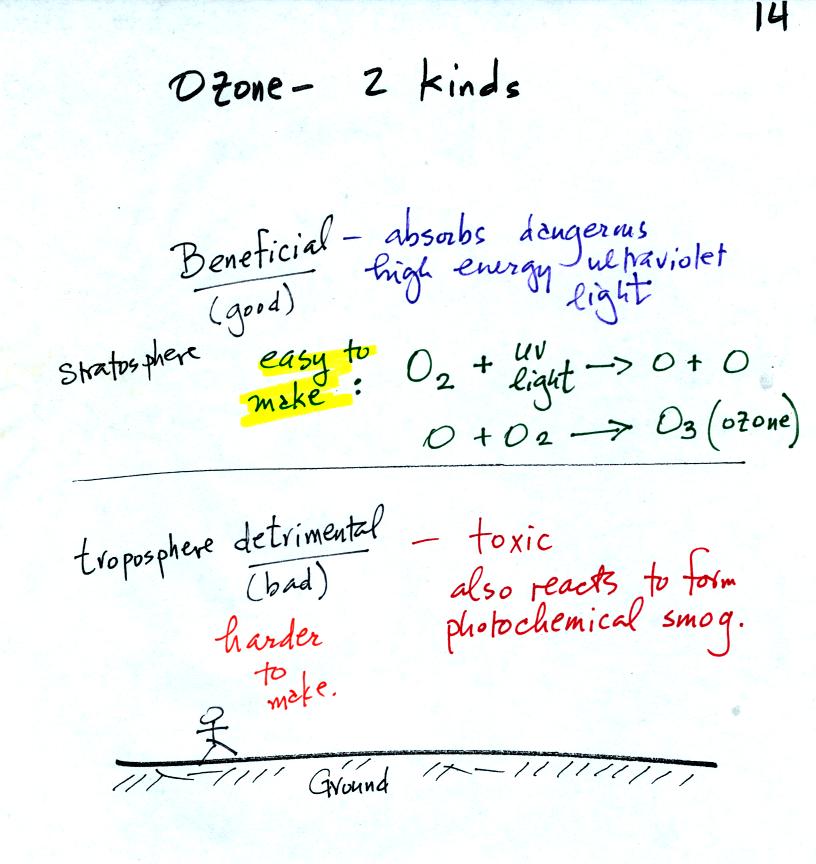 14
Ozone - 2 kinds
Beneficial - absorbs dangerous
(good) high energy ultraviolet
light
stratosphere easy to make : O2 + uv light → O + O
O + O2 → O3 (ozone)
troposphere detrimental - toxic
(bad) also reacts to form
photochemical smog.
harder
to
make.
Ground